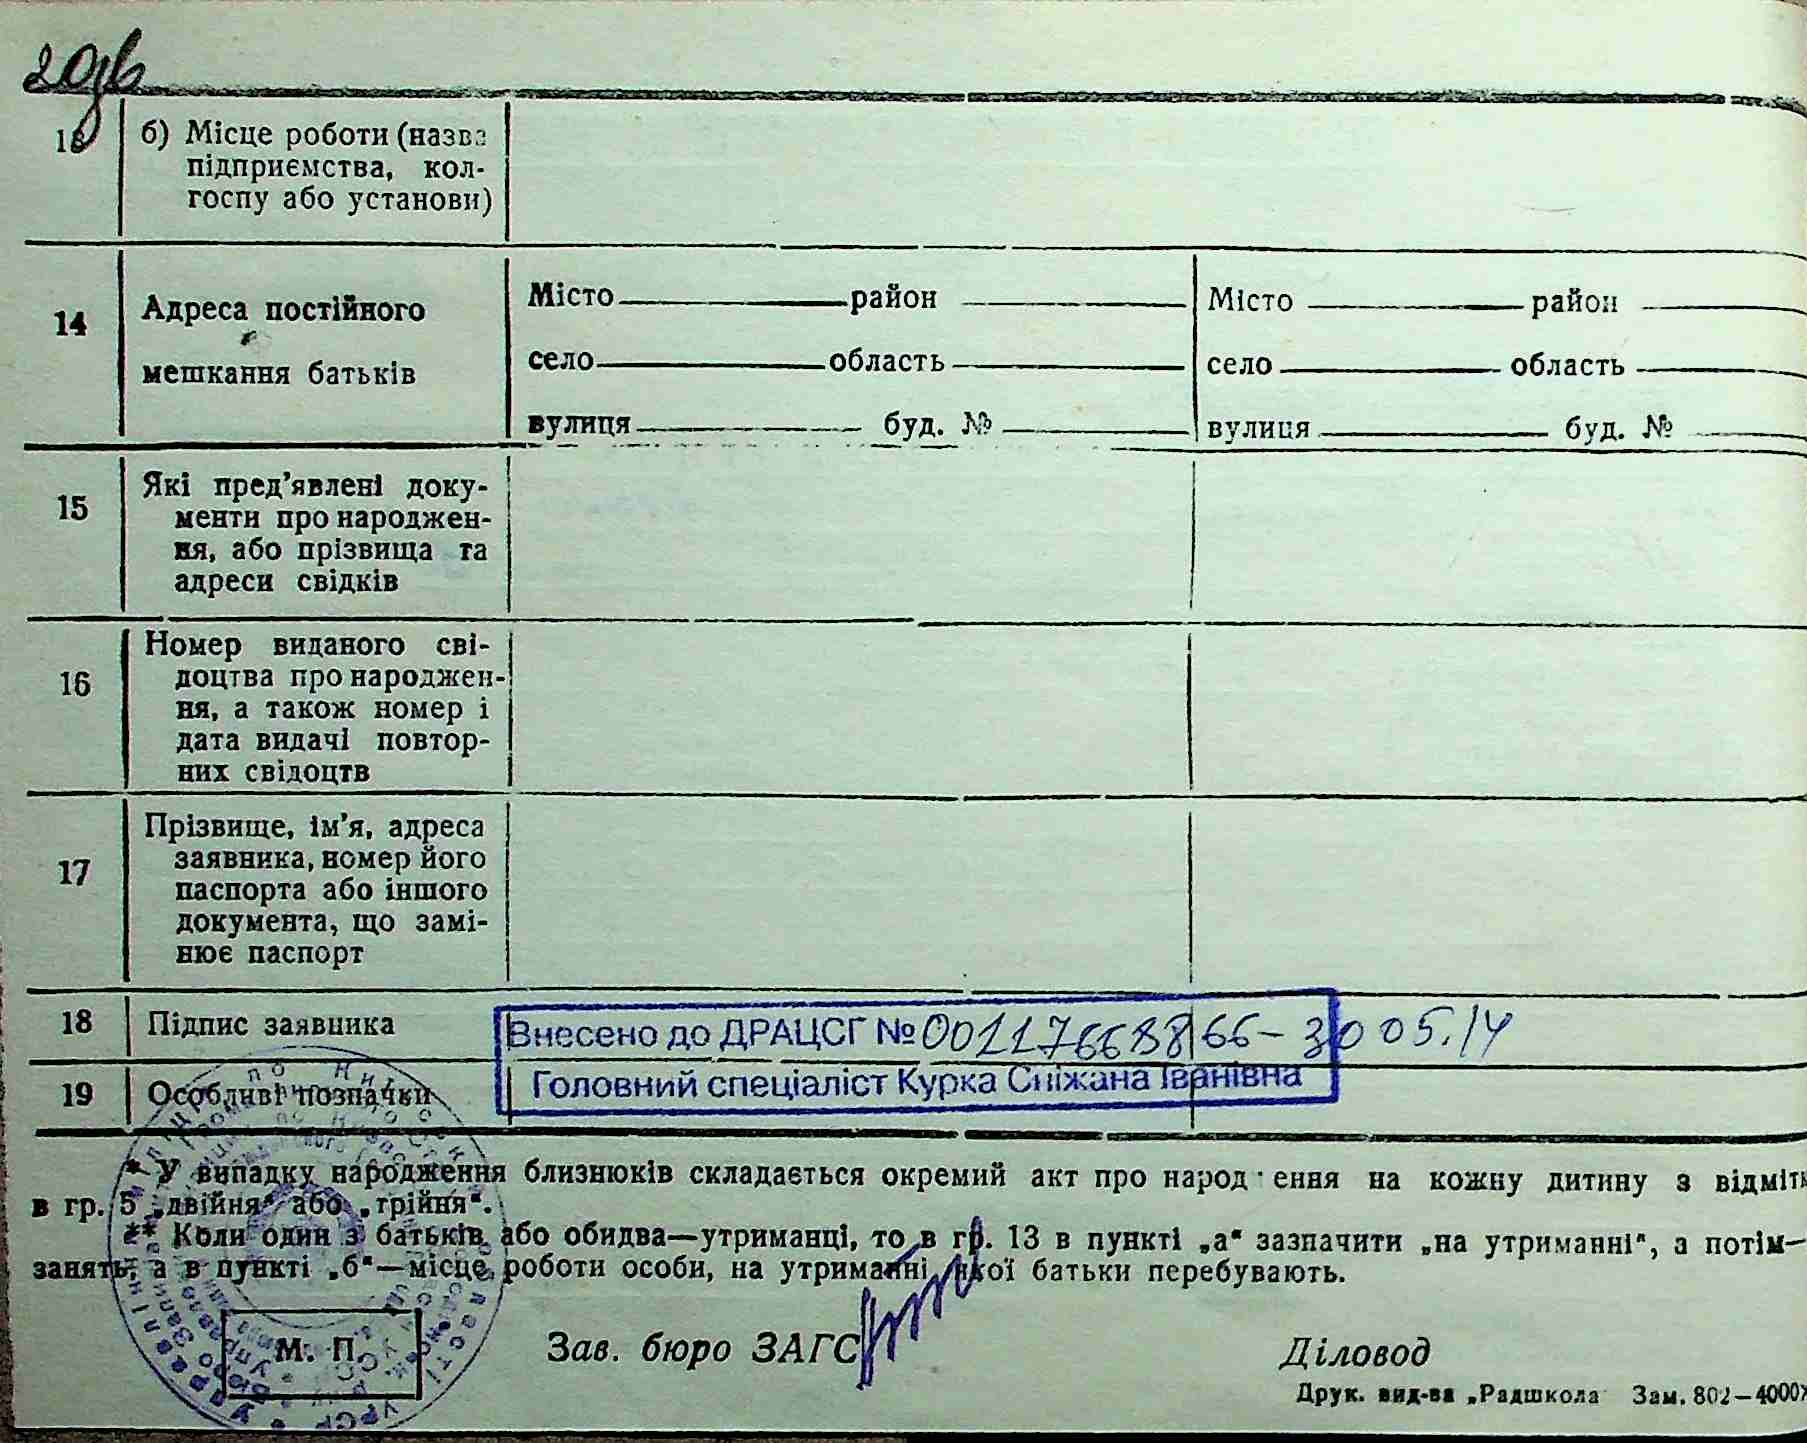 20зв
13 б) Місце роботи (назва
підприємства, кол-
госпу або установи)
14 Адреса постійного
мешкання батьків
Місто район
село область
вулиця буд. №
Місто район
село область
вулиця буд. №
15 Які пред’явлені доку-
менти про народжен-
ня, або прізвища та
адреси свідків
16 Номер виданого сві-
доцтва про народжен-
ня, а також номер і
дата видачі повтор-
них свідоцтв
17 Прізвище, ім’я, адреса
заявника, номер його
паспорта або іншого
документа, що замі-
нює паспорт
18 Підпис заявника
Внесено до ДРАЦСГ № 00117668866 - 30 05.14
19 Особливі позначки
Головний спеціаліст Курка Сніжана Іванівна
* У випадку народження близнюків складається окремий акт про народ ення на кожну дитину з відмітк
в гр. 5 „двійня“ або „трійня“.
** Коли один з батьків або обидва—утриманці, то в гр. 13 в пункті „а“ зазначити „на утриманні“, а потім—
занять, а в пункті „б“—місце роботи особи, на утриманні якої батьки перебувають.
М. П.
Зав. бюро ЗАГС
Діловод
Друк. вид-ва „Радшкола Зам. 802—4000